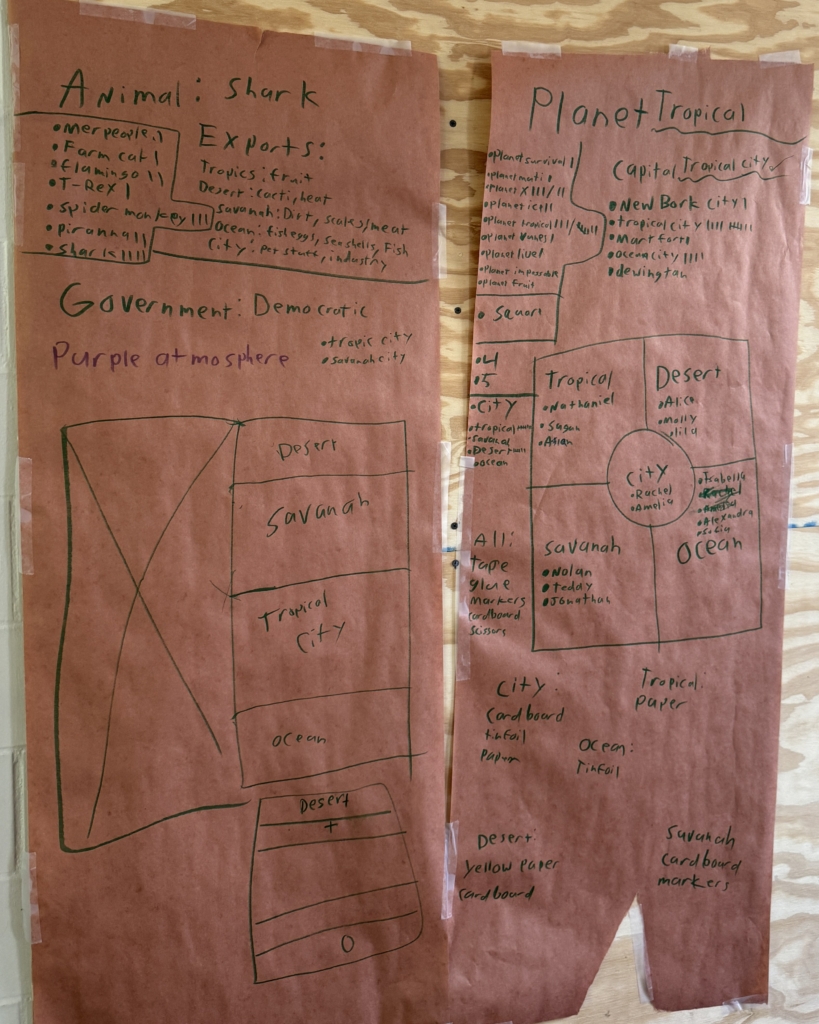 Animal: Shark
• Mer people \\
• Farm cat |
• flamingo \\
• T-Rex |
• Spider monkey |||
• piranna ||
• Shark ||||
Exports:
Tropics: fruit
Desert: Cacti, heat
Savanah: Dirt, scales/meat
Ocean: fisheggs, Seashells, Fish
City: Pet stuff, industry
Government: Democrotic
Purple atmosphere
• tropic city
• Savanah city
Desert
Savanah
Tropical
City
Ocean
Desert
+
O
Planet Tropical
• planet survival |
• planet X
• planet ice ||
• planet tropical
• planet live |
• planet impossible
• planet fruit
Capital Tropical city ✓
• New Bark City |
• tropical City
• Mart fort |
• Ocean city ||||
• dewingtan
• Square
• 4
• 5
• City
• tropical
• Desert
• Ocean
Tropical
• Nathaniel
• Sagan
Desert
• Alice
• Molly
• lila
City
• Rachel
• Amelia
• Isabella
• Rachel
• Amelia
• Alexandra
• Sofia
Ocean
Savanah
• Nolan
• Teddy
• Jonathan
All:
tape
glue
markers
cardboard
Scissors
City:
Cardboard
tinfoil
paper
Tropical:
Paper
Ocean:
Tinfoil
Desert:
Yellow Paper
cardboard
Savanah
cardboard
markers